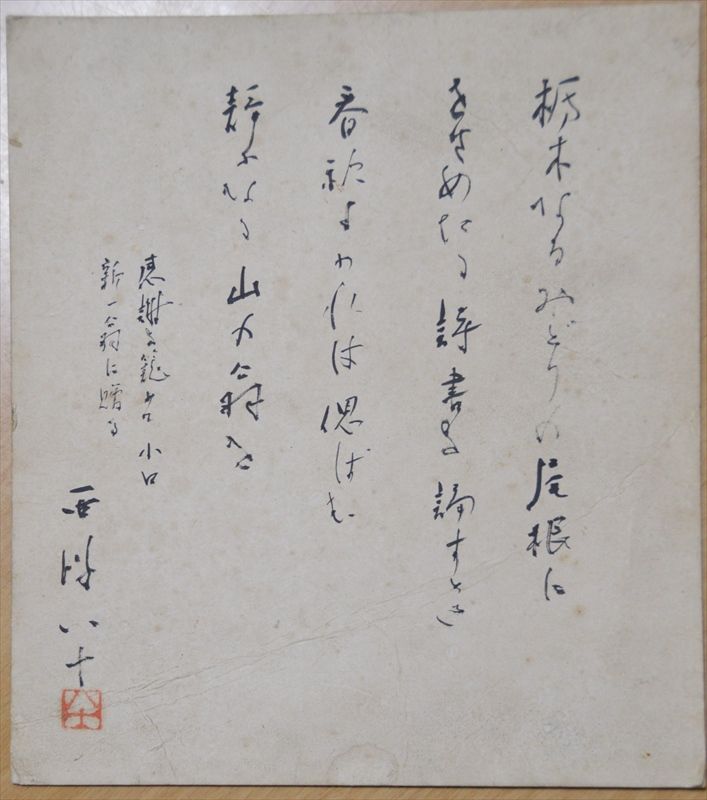 栃木なるみどりの屋根に
をさめたる詩書を誦すとき
春秋よわれは偲ばむ
静かなる山の翁を
恵謝を籠めて 小口
新一翁に贈る
西條八十
八十